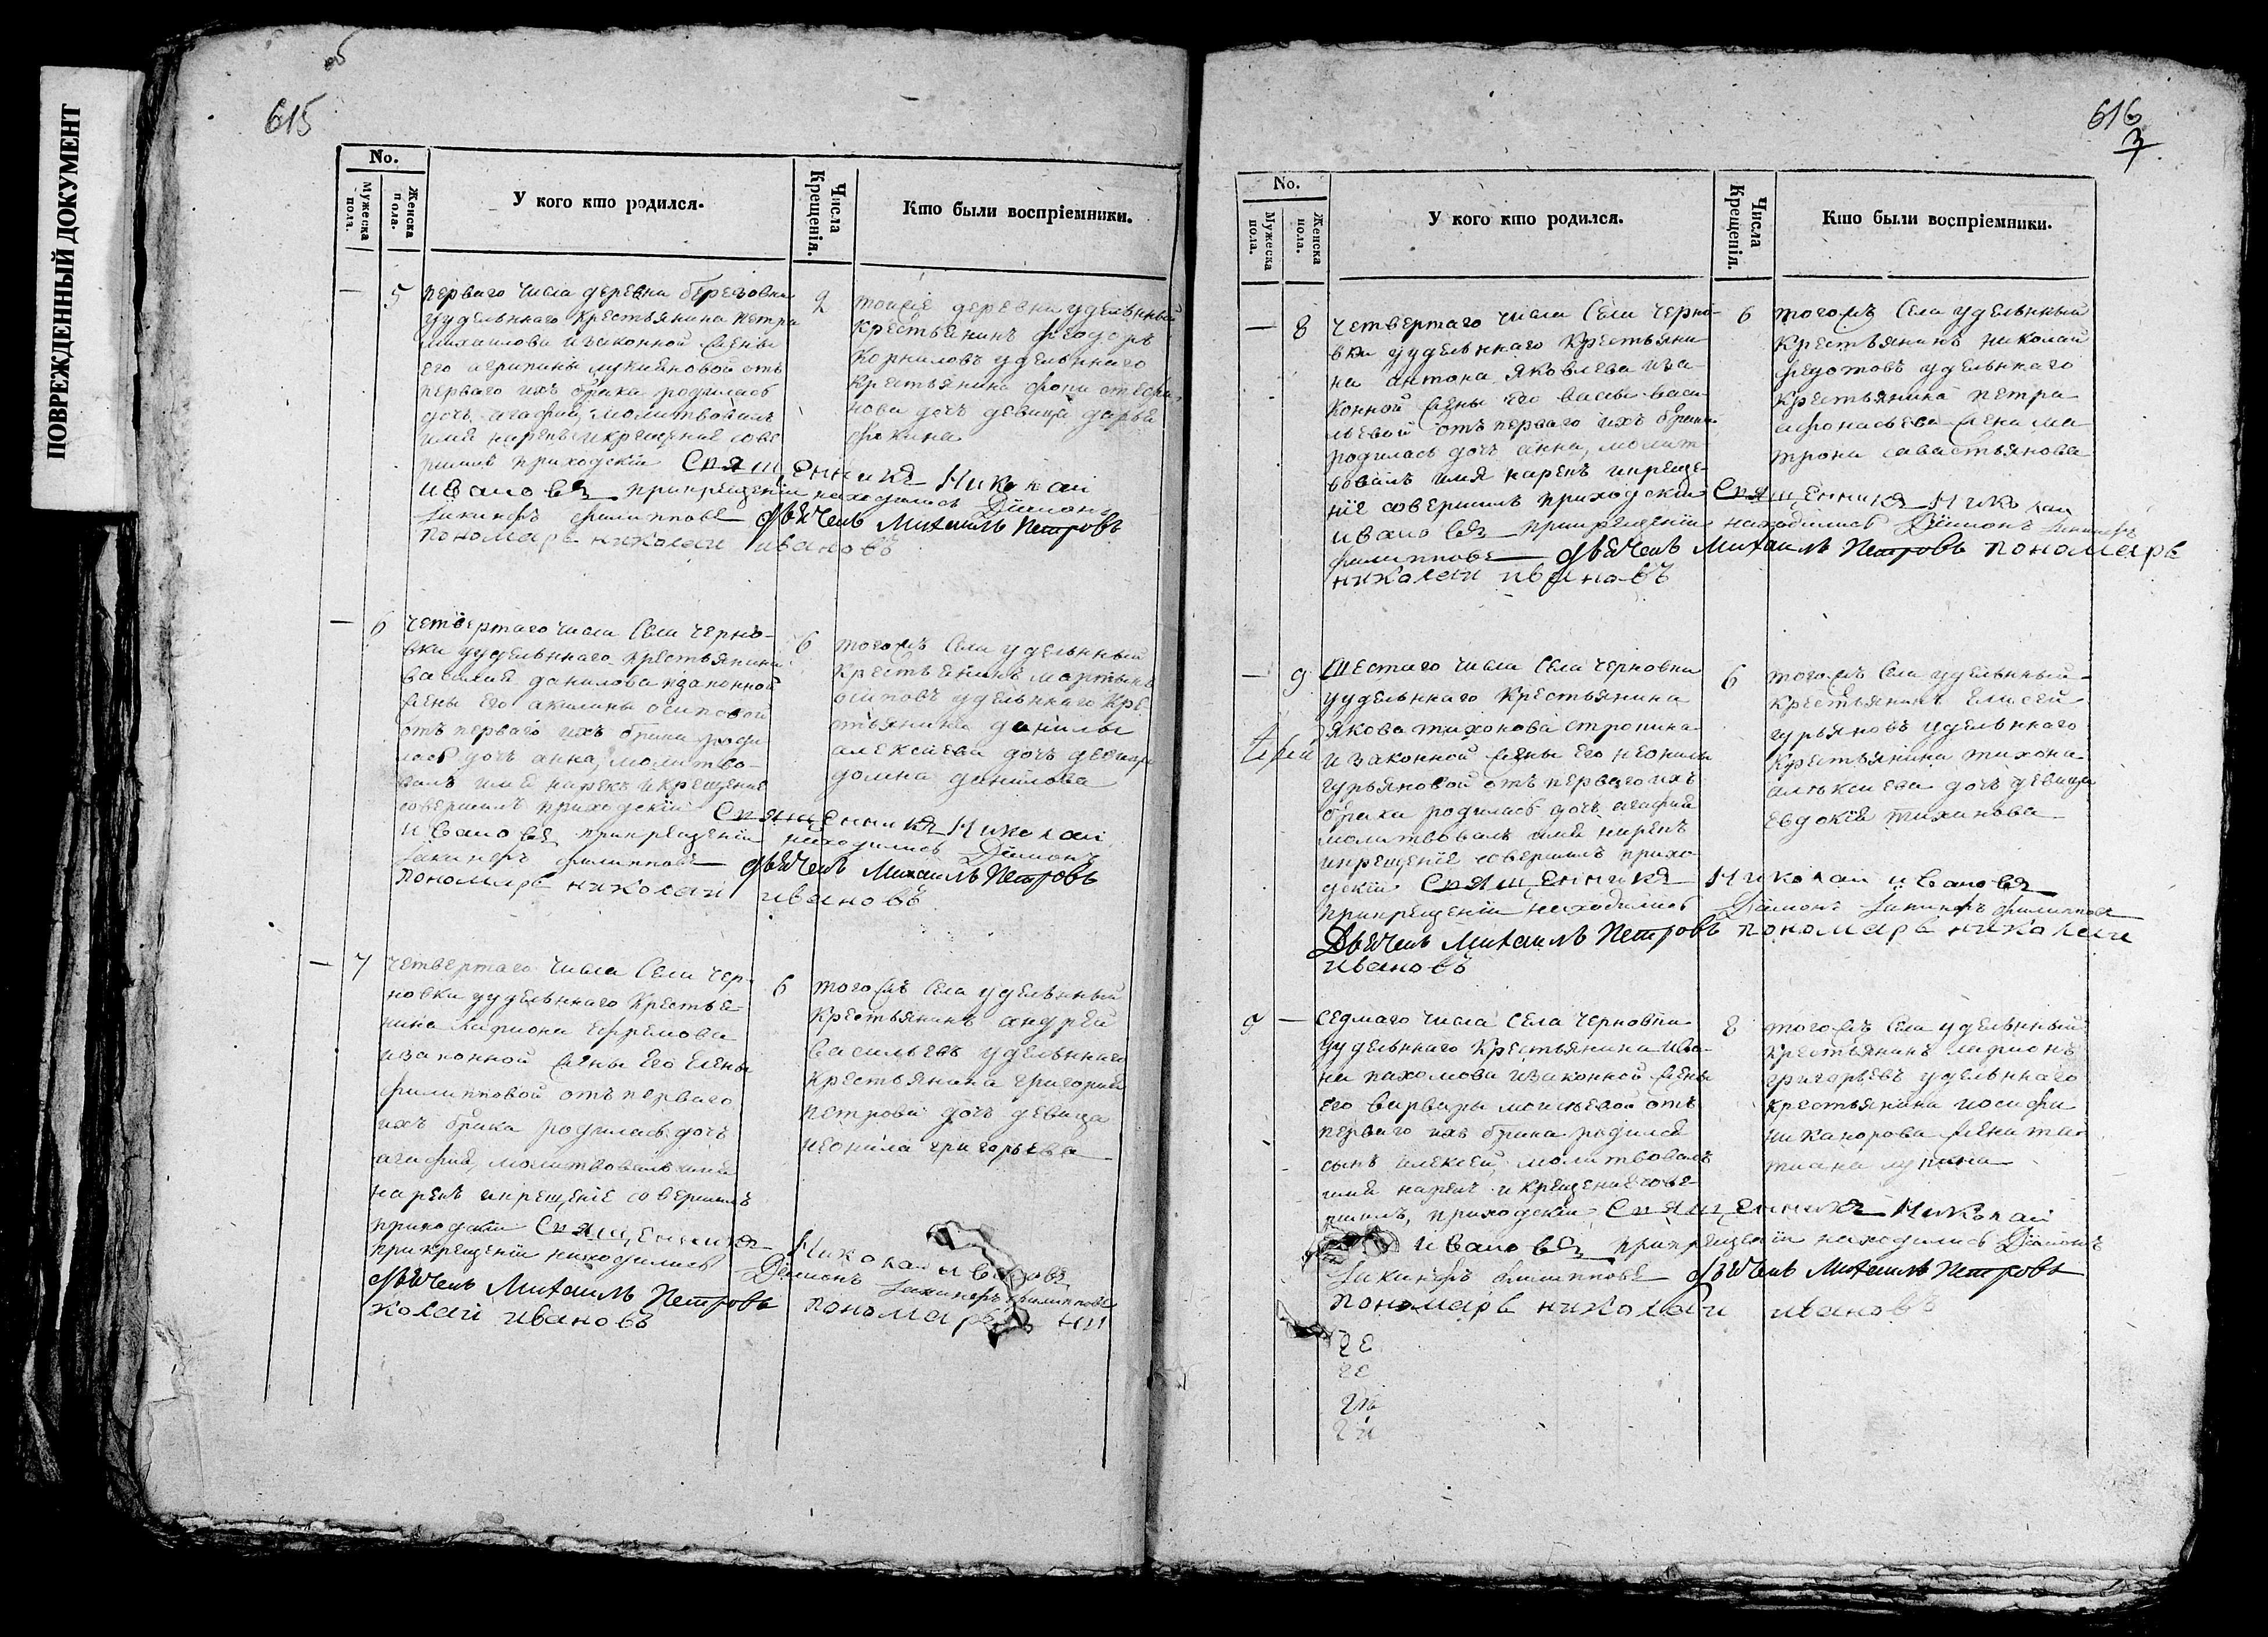 ПОВРЕЖДЕННЫЙ ДОКУМЕНТ
615
No.
Мужеска пола.
Женска пола.
У кого кто родился.
Числа Крещенія.
Кто были воспріемники.
— 5
перваго числа деревни березовки
у удельннаго Крестьянина петра
михаилова изаконной жены
его агрипины лукияновой отъ
перваго ихъ брака родилась
дочь агафия, молитвовалъ
имя нарекъ икрещение сове
ршилъ приходскій Священникъ Николай
Ивановъ прикрещеніи находились Діаконъ
Иакинфъ филипповъ Дьячекъ Михаилъ Петровъ
пономарь николаи ивановъ
2
тойже деревни удельнный
Крестьянинъ феодоръ
Корниловъ удельннаго
Крестьянина
нова дочь девица дарья
фокина
— 6
четвертаго числа Села черно-
вки у удельннаго крестьянина
василия данилова изаконной
жены его акилины осиповой
отъ перваго ихъ брака роди
лась дочь анна, молитво-
валъ имя нарекъ икрещение
совершилъ приходскій Священникъ Николай
Ивановъ прикрещеніи находились Діаконъ
Иакинфъ филипповъ Дьячекъ Михаилъ Петровъ
пономарь николаи ивановъ
6
тогожъ Села удельнный
Крестьянинъ мартынъ
осиповъ удельннаго Кре
стьянина данилы
алексиева дочь девица
домна данилова
— 7
четвертаго числа Села чер-
новки у удельннаго Крестья-
нина Лариона ефремова
изаконной жены его елены
филипповой отъ перваго
ихъ брака родилась дочь
агафия, молитвовалъ имя
нарекъ икрещеніе совершилъ
приходскій Священникъ Николай Ивановъ
прикрещеніи находились Діаконъ Иакинфъ филипповъ
Дьячекъ Михаилъ Петровъ пономарь ни
колай ивановъ
6
тогожъ Села удельнный
Крестьянинъ андрей
Васильевъ удельннаго
Крестьянина григория
петрова дочь девица
неонила григорьева
616
3
No.
Мужеска пола.
Женска пола.
У кого кто родился.
Числа Крещенія.
Кто были воспріемники.
— 8
четвертаго числа Села черно-
вки у удельннаго Крестьяни
на антона яковлева иза-
конной жены его васы васи-
льевой отъ перваго ихъ брака
родилась дочь анна, молит
вовалъ имя нарекъ икреще-
ніе совершилъ приходскій Священникъ Николаи
Ивановъ прикрещеніи находились Діаконъ Иакинфъ
филипповъ Дьячекъ Михаилъ Петровъ пономарь
николаи ивановъ
6
тогожъ Села удельнный
Крестьянинъ николай
федотовъ удельннаго
Крестьянина петра
афонасьева жена ма
трона савастьянова
— 9
шестаго числа Села черновки
у удельннаго Крестьянина
якова тихонова стропина
изаконной жены его неонилы
гурьяновой отъ перваго ихъ
брака родилась дочь агафия
молитвовалъ имя нарекъ
икрещеніе совершилъ прихо-
дскій Священникъ Николаи Ивановъ
прикрещеніи находились Діаконъ Иакинфъ филипповъ
Дьячекъ Михаилъ Петровъ пономарь николаи
ивановъ
6
тогожъ Села удельнный
крестьянинъ Елисей
гурьяновъ удельннаго
Крестьянина тихона
алексиева дочь девица
евдокия тиханова
5 —
седмаго числа Села черновки
у удельннаго Крестьянина ива-
на пахомова изаконной жены
его варвары моисиевой отъ
перваго ихъ брака родился
сынъ алексей, молитвовалъ
имя нарекъ икрещение сове-
ршилъ, приходскій Священникъ Николай
Ивановъ прикрещеніи находились Діаконъ
Иакинфъ филипповъ Дьячекъ Михаилъ Петровъ
пономарь николаи ивановъ
8
тогожъ Села удельнный
Крестьянинъ ларионъ
григорьевъ удельннаго
крестьянина иосифа
никанорова жена тат
тиана лукина